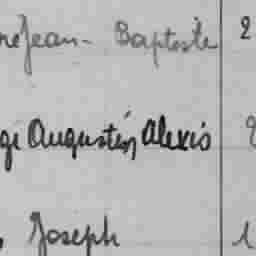 Jean-Baptiste 2
Augustin Alexis
Joseph 1